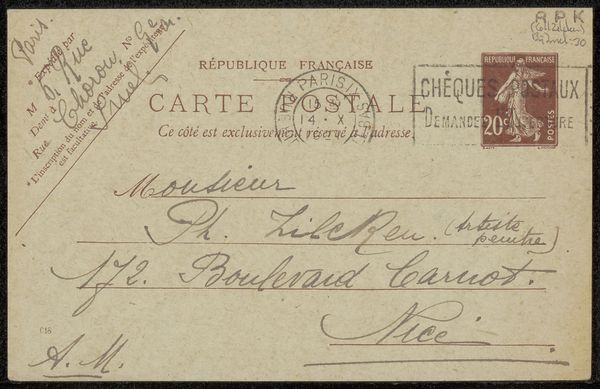 R P K
Paris.
* Expédié par
M
Demt à
Rue
N°
6, Rue
Choron,
* L'inscription du nom et de l'adresse de l'expéditeur
est facultative.
RÉPUBLIQUE FRANÇAISE
CARTE POSTALE
Ce côté est exclusivement réservé à l'adresse.
PARIS IX
14 X
CHÈQUES POSTAUX
DEMANDE
RÉPUBLIQUE FRANÇAISE
20c
POSTES
Monsieur
Ph. Zilcken. (Artiste
peintre)
172. Boulevard Carnot.
Nice
C16
A. M.